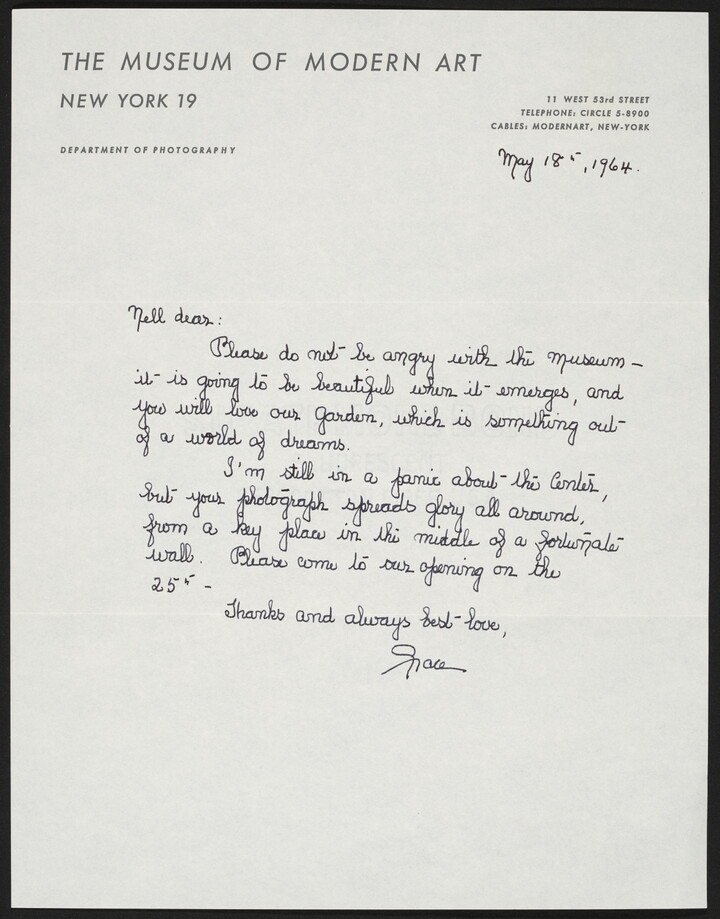 THE MUSEUM OF MODERN ART
NEW YORK 19
11 WEST 53rd STREET
TELEPHONE: CIRCLE 5-8900
CABLES: MODERNART, NEW-YORK
DEPARTMENT OF PHOTOGRAPHY
May 18th, 1964.
Nell dear:
Please do not be angry with the Museum –
it is going to be beautiful when it emerges, and
you will love our Garden, which is something out
of a world of dreams.
I'm still in a panic about the Center,
but your photograph spreads glory all around,
from a key place in the middle of a fortunate
wall. Please come to our opening on the
25th –
Thanks and always best love,
Grace